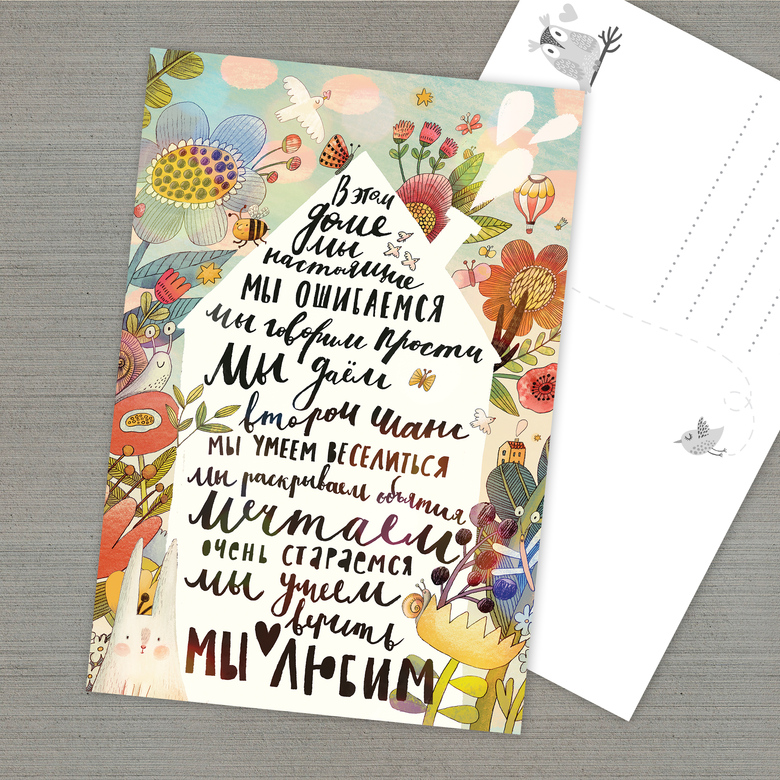 В этом
доме
мы
настоящие
МЫ ОШИБАЕМСЯ
мы говорим прости
Мы даём
второй шанс
МЫ УМЕЕМ ВЕСЕЛИТЬСЯ
мы раскрываем объятия
мечтаем
ОЧЕНЬ СТАРАЕМСЯ
мы умеем
верить
МЫ ЛЮБИМ